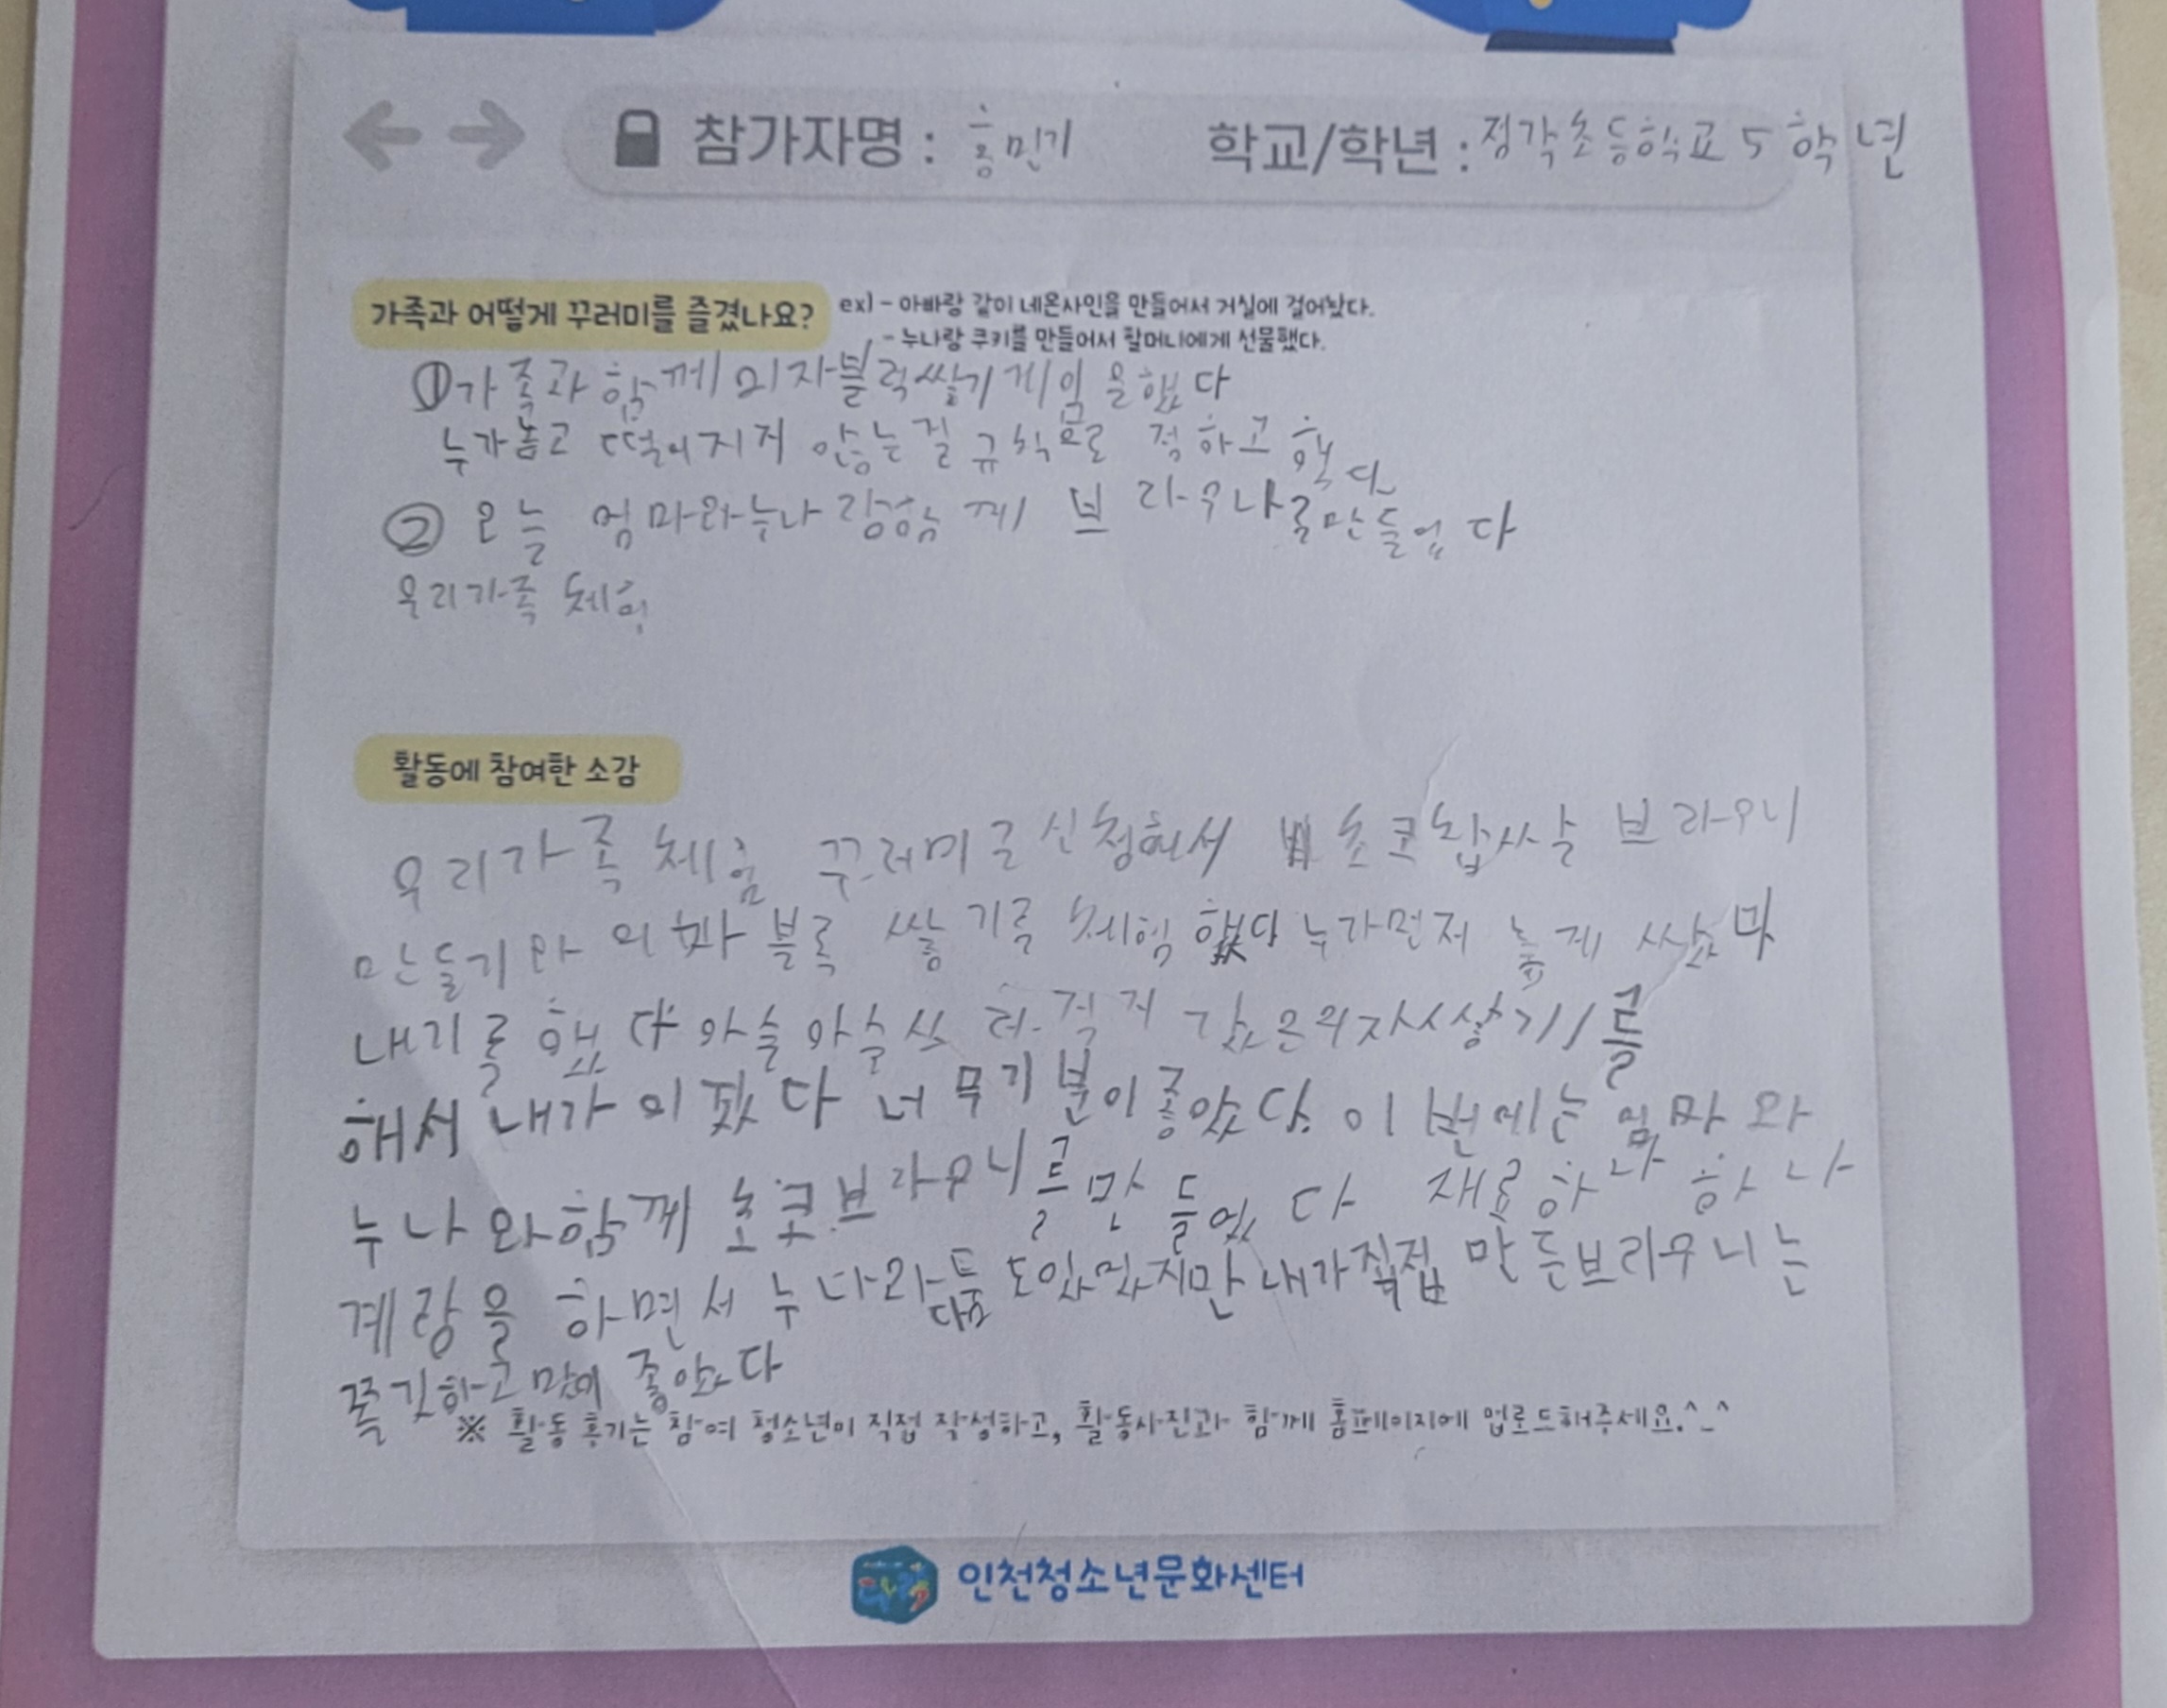 참가자명 : 홍민기 학교/학년 : 정각초등학교 5학년
가족과 어떻게 꾸러미를 즐겼나요? ex) - 아빠랑 같이 네온사인을 만들어서 거실에 걸어놨다.
- 누나랑 쿠키를 만들어서 할머니에게 선물했다.
①가족과 함께 의자블럭쌓기게임을했다
누가놓고 떨어지지 않는걸 규칙으로 정하고 했다
② 오늘 엄마와누나랑함께 브라우니를만들었다
우리가족 체험
활동에 참여한 소감
우리가족 체험 꾸러미를신청해서 초코찹쌀 브라우니
만들기와 의자 블록 쌓기를 체험 했다 누가먼저 높게 쌓나
내기를 했다 아슬아슬 의자쌓기를
해서 내가 이겼다 너무기분이좋았다. 이번에는 엄마와
누나와함께 초코브라우니를만들었다 재료하나하나
계량을 하면서 누나와 다툼도있었지만 내가직접 만든브라우니는
쫄깃하고맛이 좋았다
※ 활동 후기는 참여 청소년이 직접 작성하고, 활동사진과 함께 홈페이지에 업로드해주세요.^_^
인천청소년문화센터